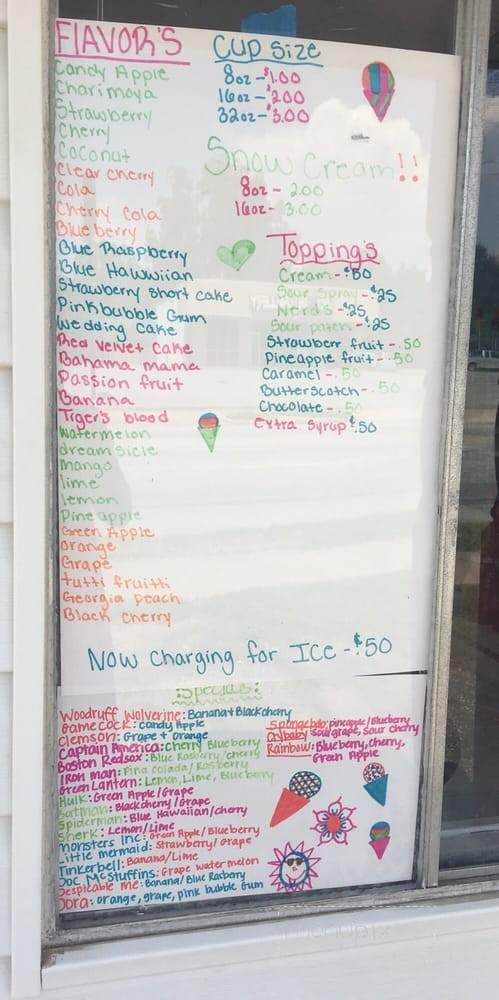 FLAVOR'S
Candy Apple
Charimoya
Strawberry
Cherry
Coconut
Clear cherry
Cola
Cherry Cola
Blueberry
Blue Raspberry
Blue Hawwiian
Strawberry short cake
Pink bubble Gum
Wedding cake
Red velvet Cake
Bahama mama
Passion fruit
Banana
Tiger's blood
Watermelon
dreamsicle
mango
lime
lemon
Pineapple
Green Apple
orange
Grape
tutti fruitti
Georgia peach
Black cherry
Cup Size
8oz - $1.00
16oz - $2.00
32oz - $3.00
Snow Cream!!
8oz - 2.00
16oz - 3.00
Topping's
Cream - $.50
Sour Spray - $.25
Nerd's - $.25
Sour patch - $.25
Strowberr fruit - .50
Pineapple fruit - .50
Caramel - .50
Butterscotch - .50
Chocolate - .50
Extra Syrup $.50
Now Charging for ICE - $.50
:Specials:
Woodruff Wolverine: Banana + Black cherry
Gamecock: Candy Apple
Clemson: Grape + Orange
Captain America: cherry Blueberry
Boston Redsox: Blue Rasberry / cherry
Iron man: Pina colada / Rasberry
Green Lantern: Lemon, Lime, Blueberry
Hulk: Green Apple / Grape
Batman: Black cherry / Grape
Spiderman: Blue Hawaiian / cherry
Sherk: Lemon / Lime
Monsters Inc: Green Apple / Blueberry
Little mermaid: Strawberry / Grape
Tinkerbell: Banana / Lime
Doc McStuffins: Grape water melon
Despicable Me: Banana / Blue Rasbary
Dora: orange, grape, pink bubble Gum
Spongebob: pineapple / Blueberry
Crybaby: Sour grape, Sour cherry
Rainbow: Blueberry, Cherry,
Green Apple